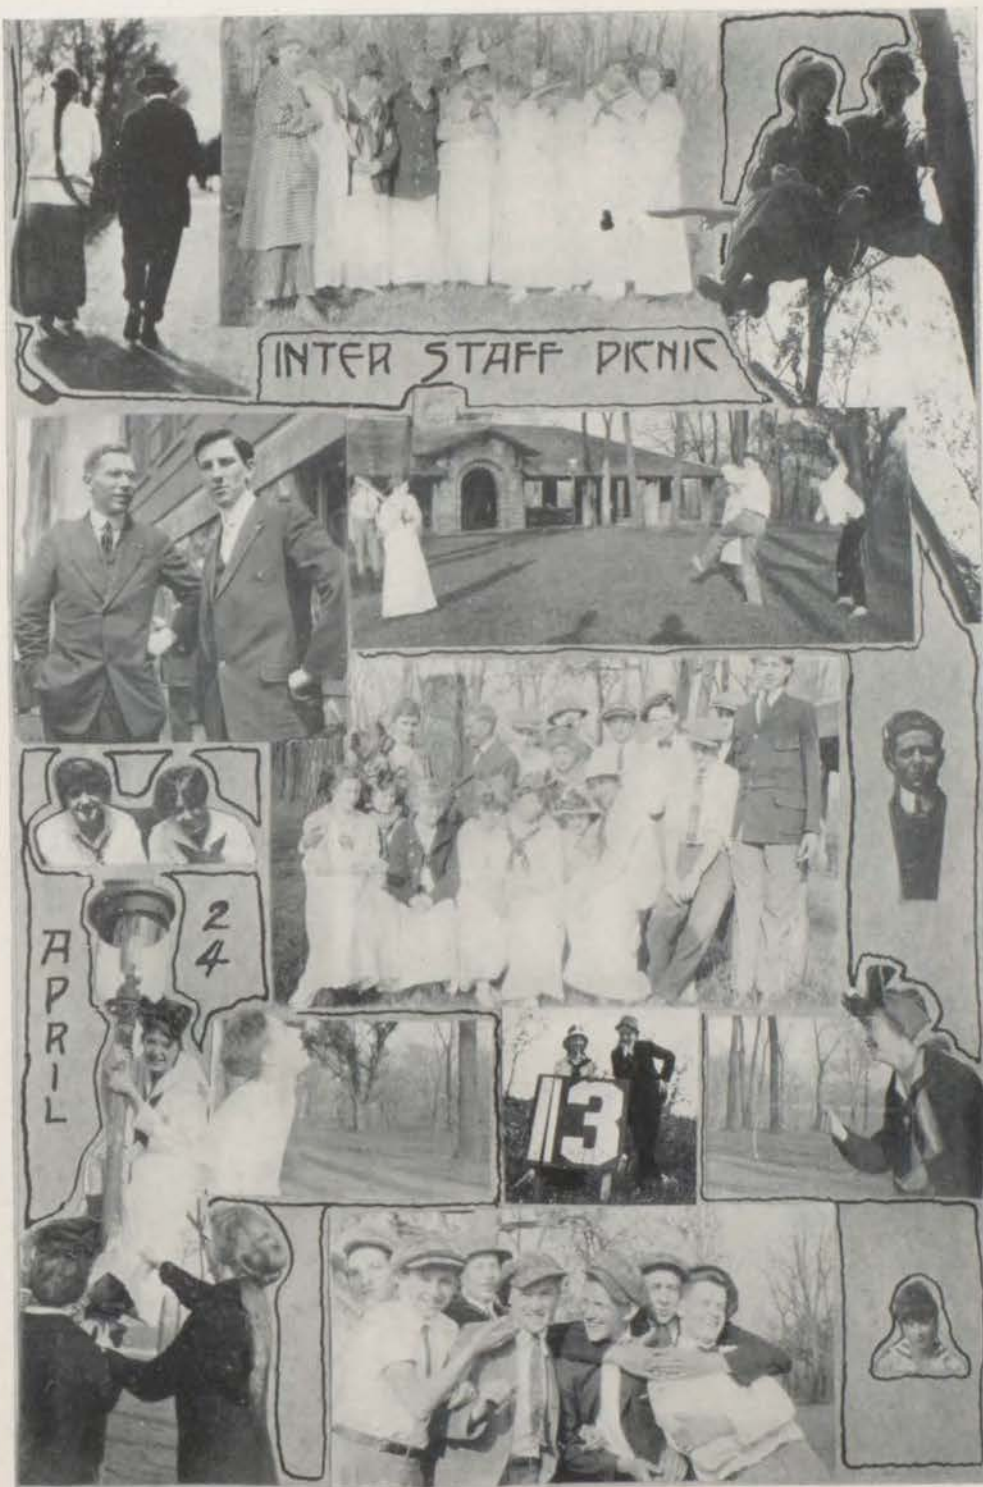 INTER STAFF PICNIC
APRIL
24
113